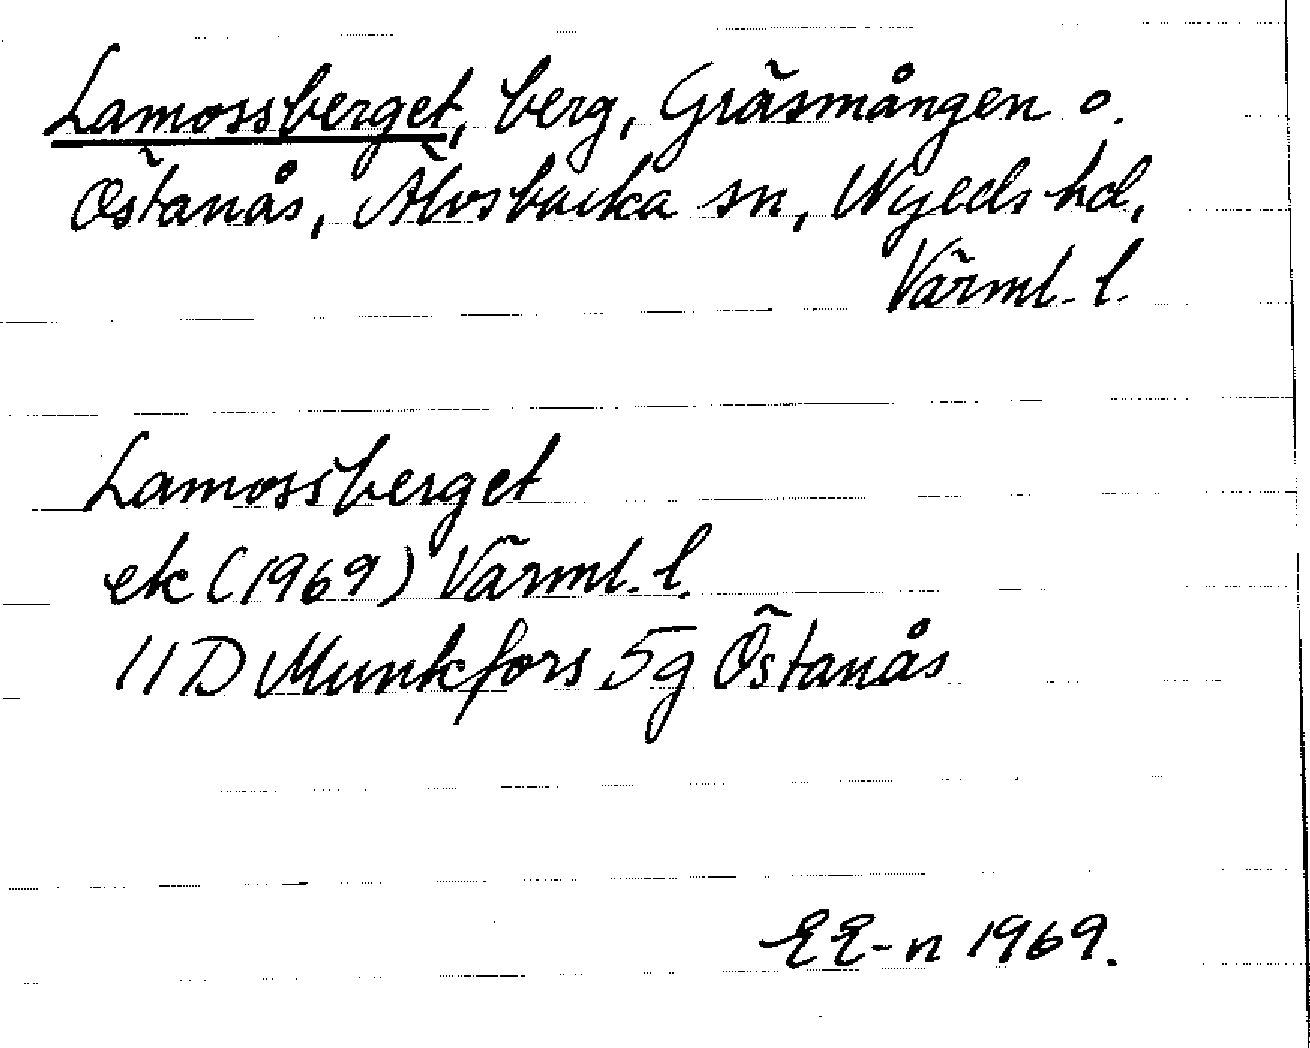 Lamossberget, berg, Gräsmången o.
Östanås, Älvsbacka sn, Nyeds hd,
Värml. l.
Lamossberget
ek (1969) Värml. l.
11 D Munkfors 5g Östanås
EE-n 1969.